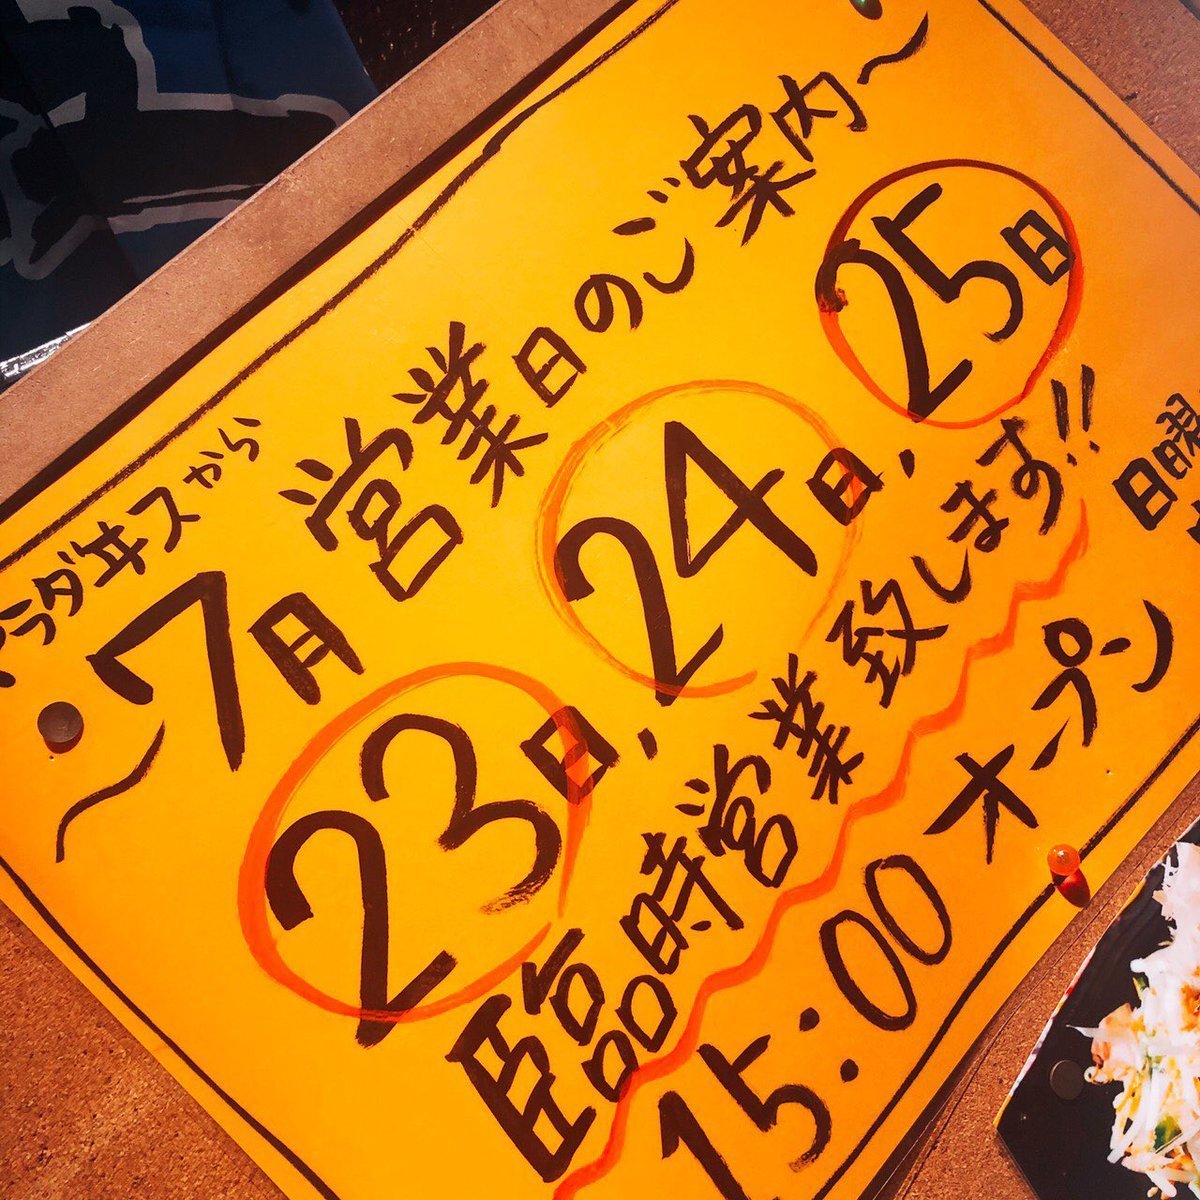 ラダヰスから
〜7月 営業日のご案内〜
23日, 24日, 25日
臨時営業致します!!
15:00 オープン
日曜